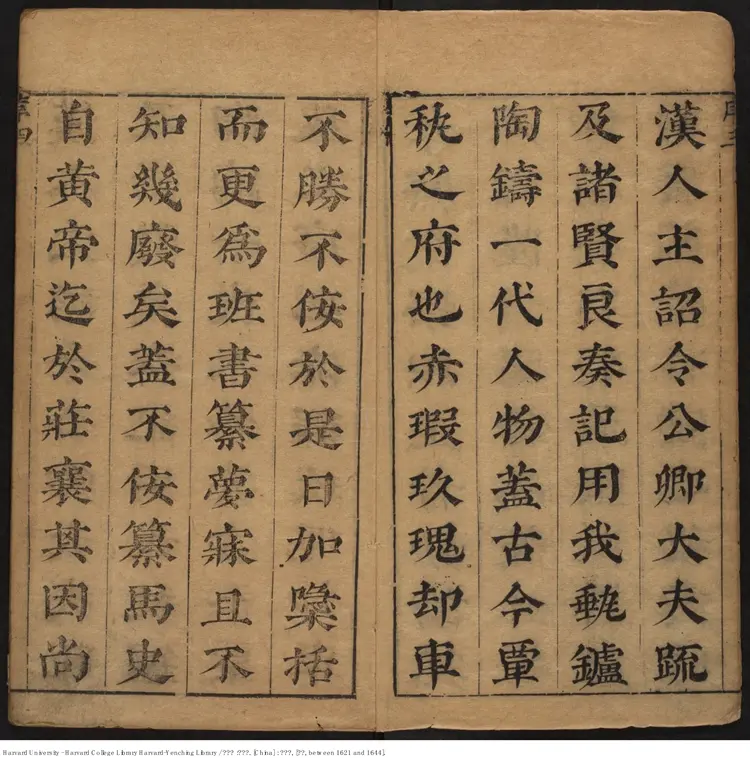 漢人主詔令公卿大夫疏
及諸賢良奏記用我鑪
陶鑄一代人物蓋古今覃
秇之府也赤瑕玖瑰却車
不勝不佞於是日加檃括
而更爲班書纂夢寐且不
知幾廢矣蓋不佞纂馬史
自黄帝迄於莊襄其因尚
序四
Harvard University - Harvard College Library Harvard-Yenching Library / ??? : ???, [China] : ???, [??, between 1621 and 1644].